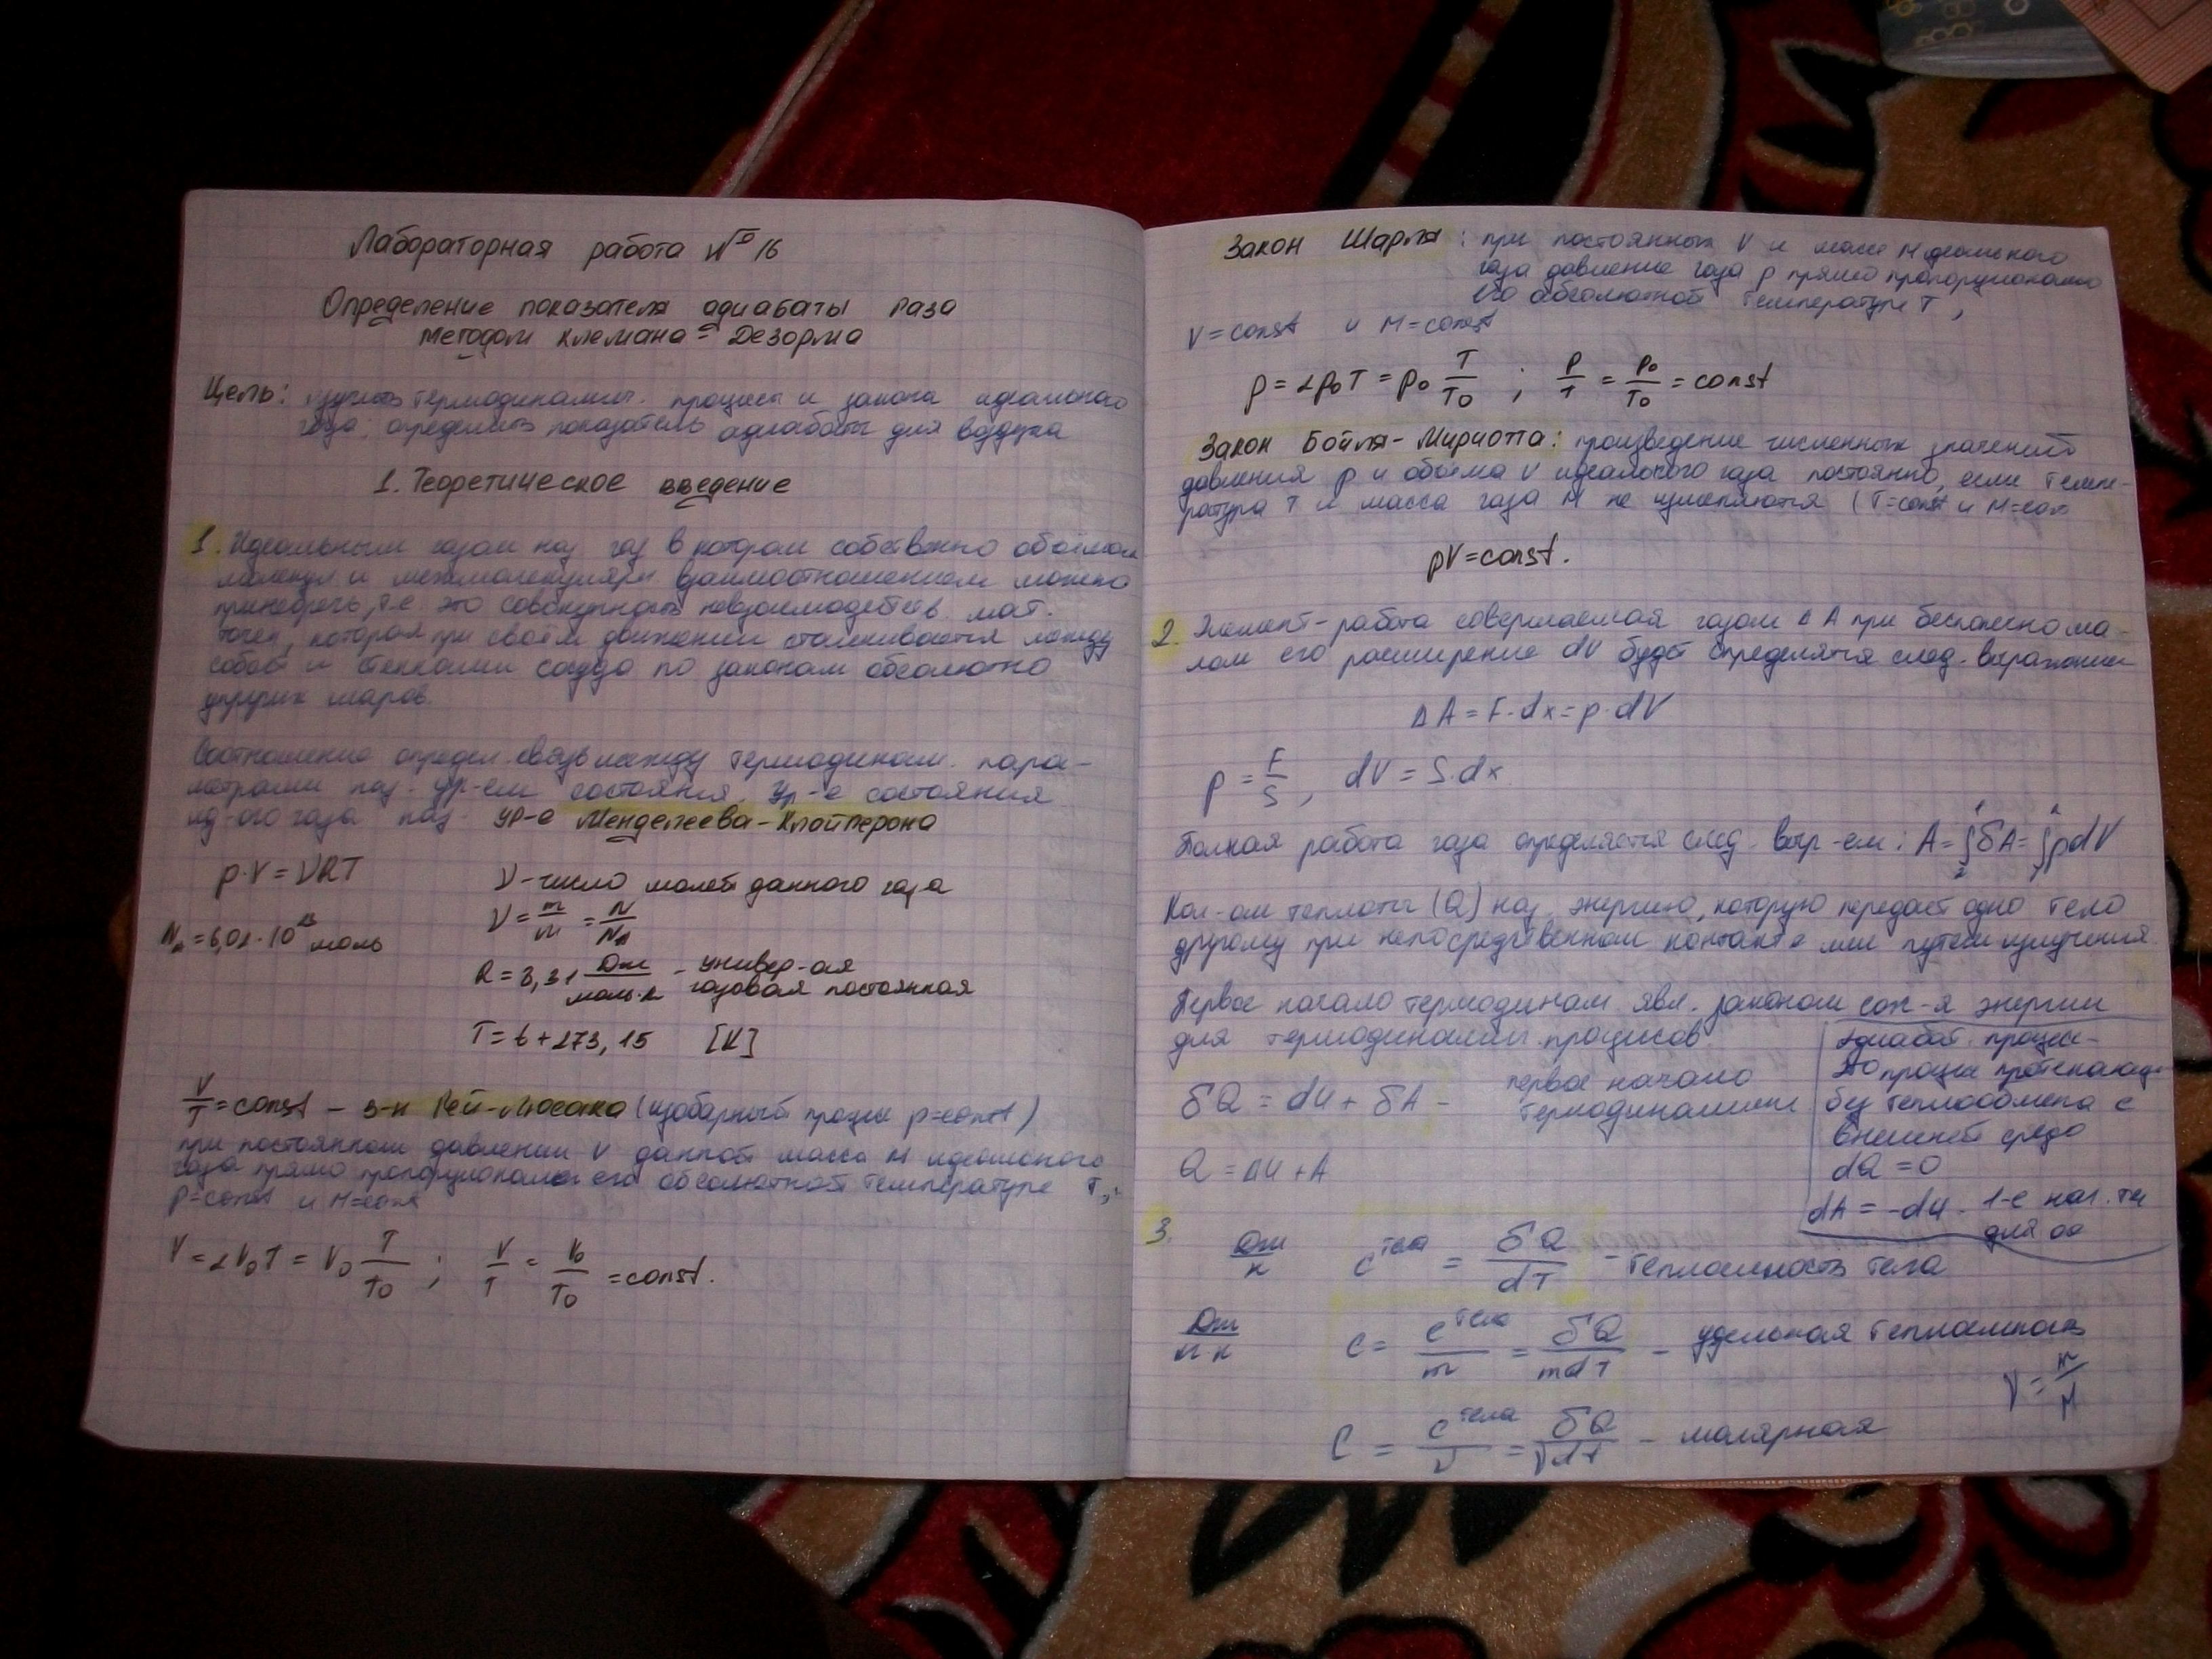 Лабораторная работа № 16
Определение показателя адиабаты газа
методом Клемана = Дезорма
Цель: изучить термодинамич. процессы и закона идеального
газа; определить показатель адиабаты для воздуха
1. Теоретическое введение
1. Идеальным газом наз газ в котром собственно объёмом
молекул и межмолекулярн. взаимоотношением можно
принебречь, т.е. это совокупность невзаимодейств. мат.
точек, которая при своём движении сталкивается между
собой и стенками сосуда по законам абсолютно
упругих шаров.
Соотношение определ. связь между термодинам. пара-
метрами наз. ур-ем состояния. Ур-е состояния
ид-ого газа наз. ур-е Менделеева-Клайперона
p·V = νRT
ν - число молей данного газа
ν = m/m = N/Nₐ
Nₐ = 6,02·10²³ моль
R = 8,31 Дж/моль·к - универ-ая
газовая постоянная
T = t + 273,15 [K]
V/T = const - з-н Гей-Люсака (изобарный процес p=const)
при постоянном давлении V данной масса M идеального
газа прямо пропорционален его абсолютной температуре T,
P=const и M=const
V = αV₀T = V₀ T/T₀ ; V/T = V₀/T₀ = const.
Закон Шарля: при постоянных V и массе M идеального
газа давление газа p прямо пропорционально
его абсолютной температуре T,
V = const и M = const
p = αp₀T = p₀ T/T₀ ; P/T = p₀/T₀ = const
Закон Бойля-Мириотта: произведение численных значений
давления p и объёма V идеального газа постоянно, если темпе-
ратура T и масса газа M не изменяются (T=const и M=con
pV = const.
2. Элемент-работа совершаемая газом ΔA при бесконечно ма-
лом его расширение dV будет определятся след. выражением
ΔA = F·dx = p·dV
p = F/S , dV = S·dx
Полная работа газа определяется след. выр-ем: A = ∫δA = ∫pdV
Кол-ом теплоты (Q) наз. энергию, которую передаёт одно тело
другому при непосредственном контакте или путем излучения.
Первое начало термодинам явл. законом сох-я энергии
для термодинамич. процесов.
δQ = dU + δA - первое начало
термодинамики
Q = ΔU + A
адиабат. процесс -
это процес протекающ.
без теплообмена с
внешней средо
dQ = 0
dA = -dU - 1-е нач. тд
для
3. Дж/к Cᵗᵉˡᵃ = δQ/dT - теплоемкость тела
Дж/кг·к c = Cᵗᵉˡᵃ/m = δQ/mdT - удельная теплоемкость
ν = m/M
C = Cᵗᵉˡᵃ/ν = δQ/νdT - молярная